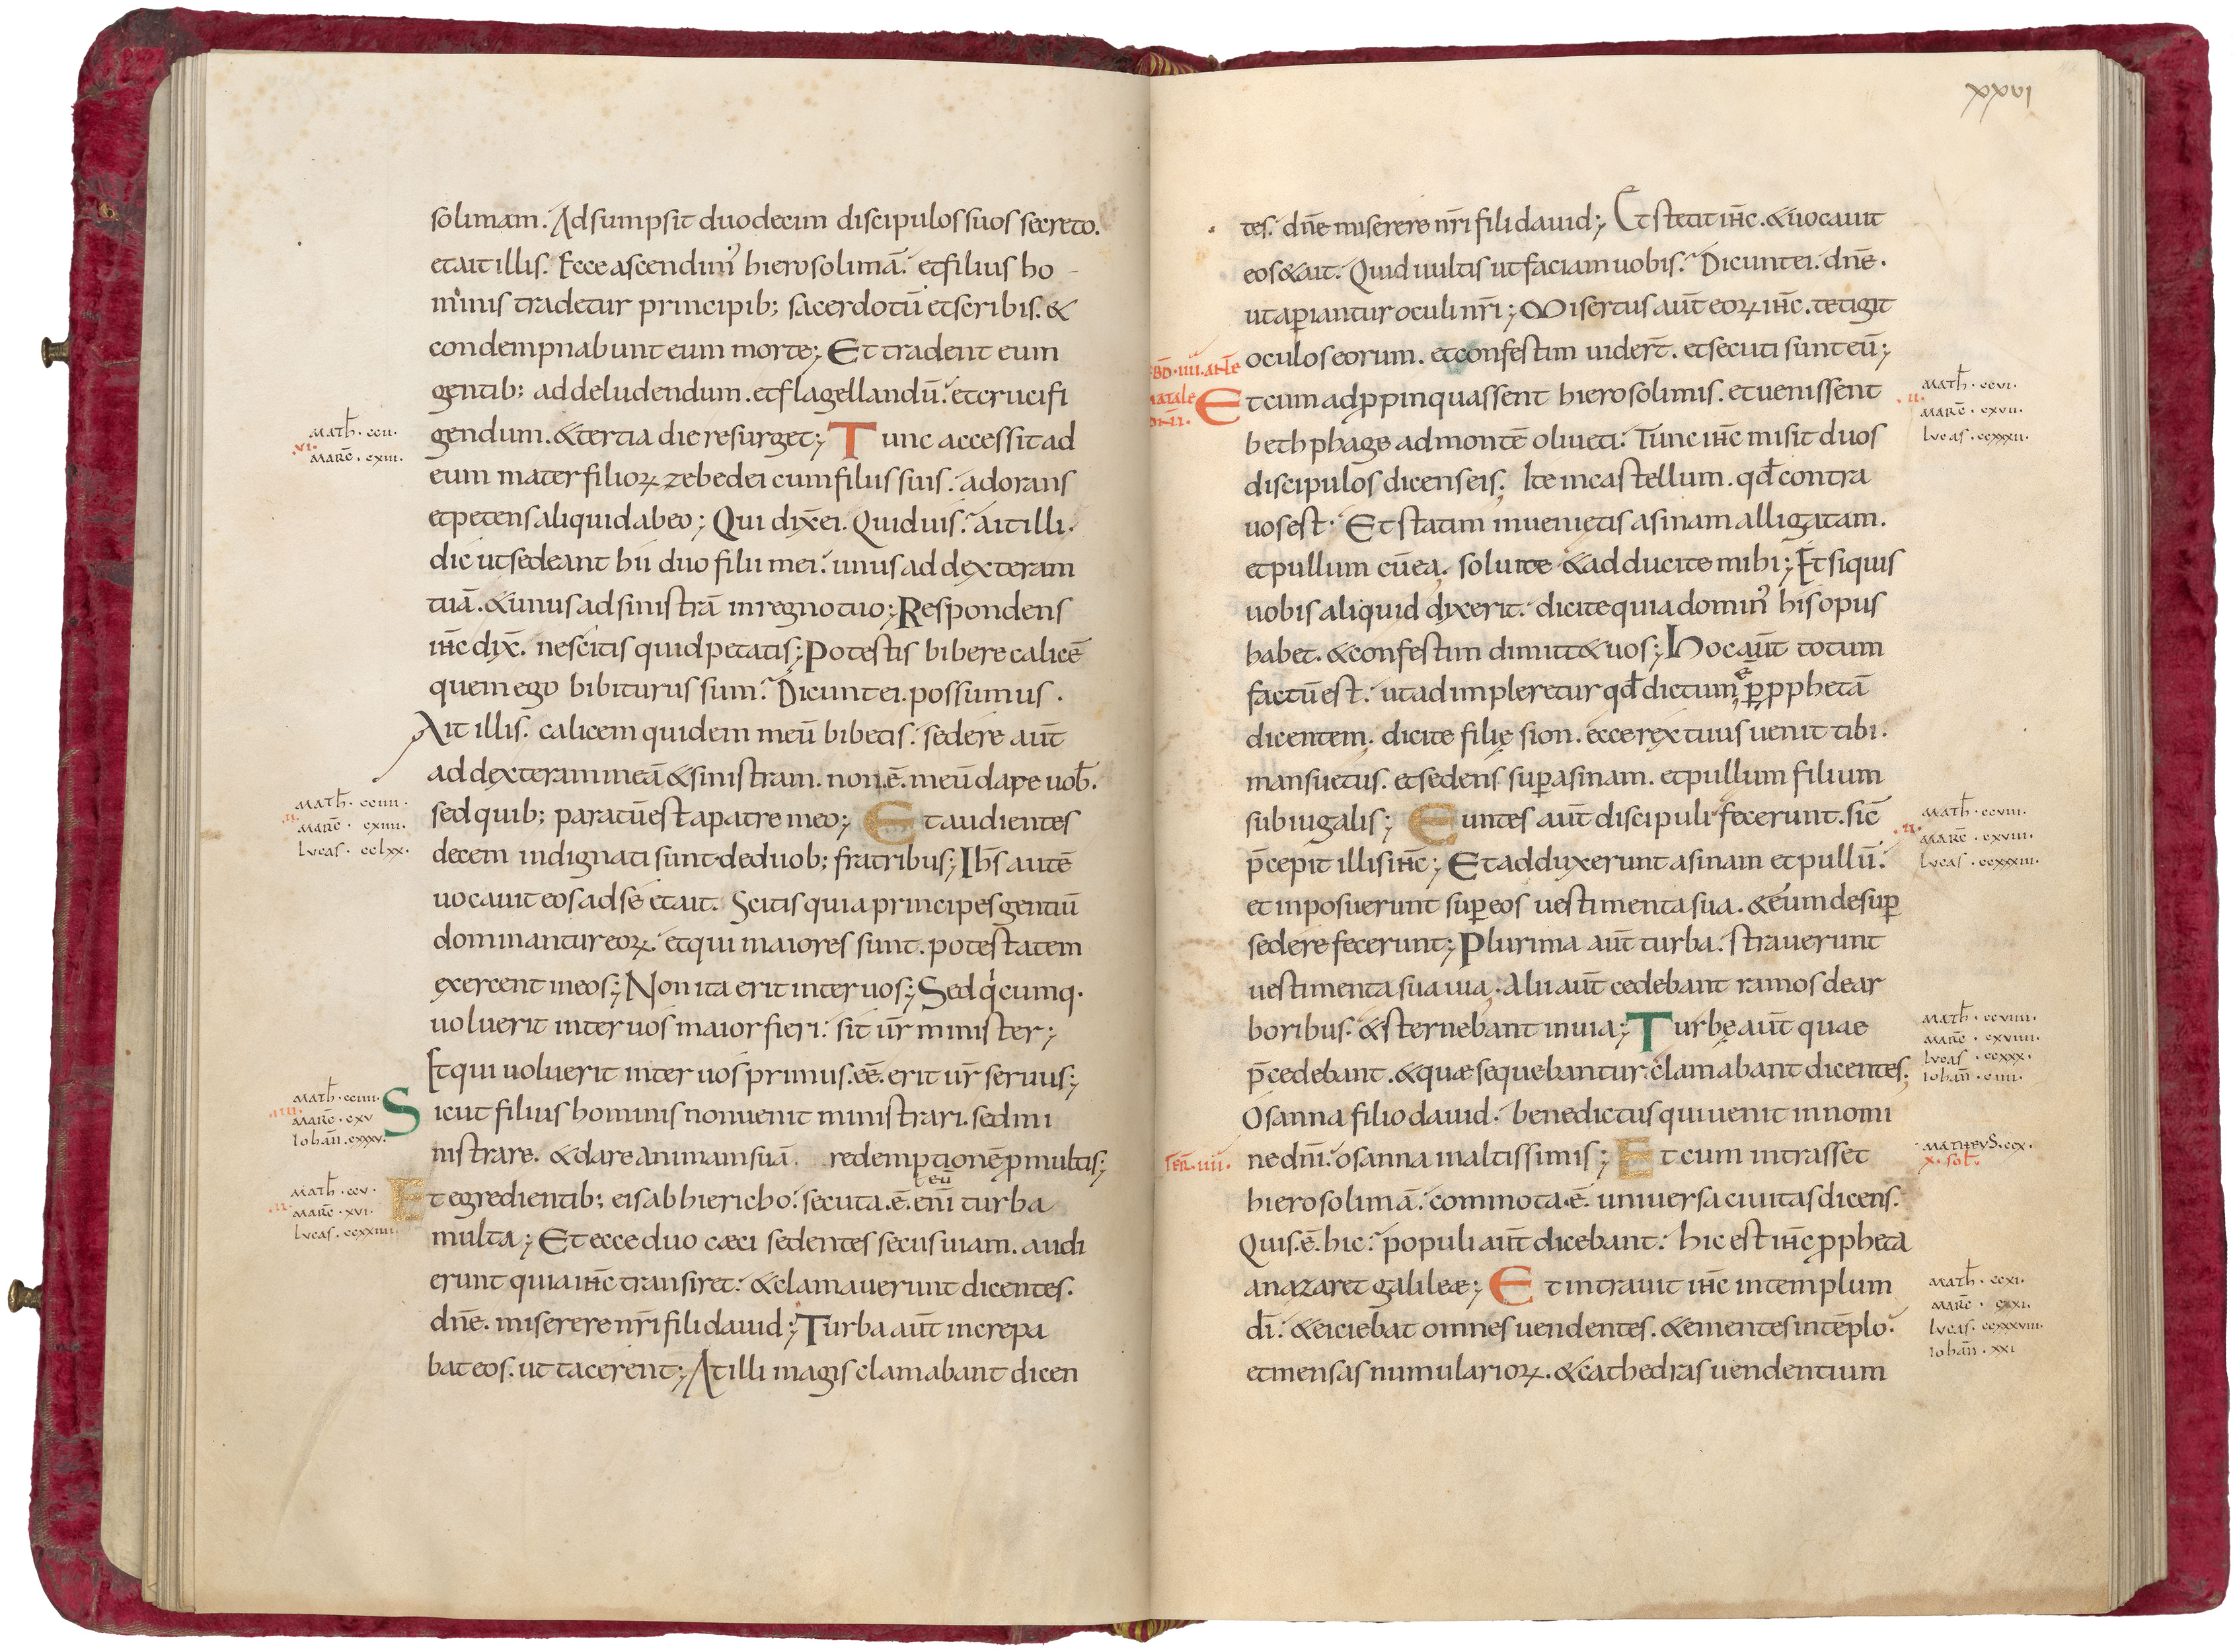 solimam. Adsumpsit duodecim discipulos suos secreto.
et ait illis. Ecce ascendim᾿ hierosolimā. et filius ho-
minis tradetur principib; sacerdotū et scribis. &
condempnabunt eum morte; Et tradent eum
gentib; ad deludendum. et flagellandū. et crucifi
gendum. & tertia die resurget; Tunc accessit ad
eum mater filioꝝ zebedei cum filiis suis. adorans
et petens aliquid ab eo; Qui dix̄ ei. Quid uis. ait illi.
dic ut sedeant hii duo filii mei. unus ad dexteram
tuā. & unus ad sinistrā in regno tuo; Respondens
ih̄c dix̄. nescitis quid petatis; Potestis bibere calicē
quem ego bibiturus sum. Dicunt ei. possumus.
Ait illis. calicem quidem meū bibetis. sedere aūt
ad dexteram meā & sinistram. non .ē. meū dare uob̄.
sed quib; paratū est a patre meo; Et audientes
decem indignati sunt de duob; fratribus; Ih̄s autē
uocauit eos ad se et ait. Scitis quia principes gentiū
dominantur eoꝝ. et qui maiores sunt. potestatem
exercent in eos; Non ita erit inter uos; Sed qͥcumq.
uoluerit inter uos maior fieri. sit ur̄ minister;
Et qui uoluerit inter uos primus .eē. erit ur̄ seruus;
Sicut filius hominis non uenit ministrari. sed mi
nistrare. & dare animam suā. redemptionē ꝓ multis;
Et egredientib; eis ab hiericho. secuta .ē. eūi eū turba
multa; Et ecce duo cæci sedentes secus uiam. audi
erunt quia ih̄c transiret. & clamauerunt dicentes.
dn̄e. miserere nr̄i fili dauid; Turba aūt increpa
bat eos. ut tacerent; At illi magis clamabant dicen
Math̄. ccii.
.vi.
Marc̄. cxiii.
Math̄. cciii.
.ii.
Marc̄. cxiiii.
Lucas. cclxx.
Math̄. cciiii.
Marc̄. cxv
Iohan̄. cxxxv.
Math̄. ccv.
.ii.
Marc̄. xvi.
Lucas. ccxxiiii.
xxvi
tes. dn̄e miserere nr̄i fili dauid; Et stetit ih̄c. & uocauit
eos & ait. Quid uultis ut faciam uobis. Dicunt ei. dn̄e.
ut aperiantur oculi nr̄i; Misertus aūt eoꝝ ih̄c. tetigit
oculos eorum. et confestim uider̄t. et secuti sunt eū;
Et cum adꝓpinquassent hierosolimis. et uenissent
bethphage ad montē oliueti. Tunc ih̄c misit duos
discipulos dicens eis. Ite in castellum. qd̄ contra
uos est. Et statim inuenietis asinam alligatam.
et pullum cū ea. soluite & adducite mihi; Et si quis
uobis aliquid dixerit. dicite quia domin᾿ his opus
habet. & confestim dimitt& uos; Hoc aūt totum
factū est. ut adimpleretur qd̄ dictum ē ꝑ ꝓphetā
dicentem. dicite filię sion. ecce rex tuus uenit tibi.
mansuetus. et sedens suꝑ asinam. et pullum filium
subiugalis; Euntes aūt discipuli fecerunt. sic̄
p̄cepit illis ih̄c; Et adduxerunt asinam et pullū.
et inposuerunt suꝑ eos uestimenta sua. & eum desuꝑ
sedere fecerunt; Plurima aūt turba. strauerunt
uestimenta sua uia. Alii aūt cedebant ramos de ar
boribus. & sternebant in uia; Turbę aūt quae
p̄cedebant. & quæ sequebantur clamabant dicentes;
Osanna filio dauid. benedictus qui uenit in nomi
ne dn̄i. osanna in altissimis; Et cum intrasset
hierosolimā. commota .ē. uniuersa ciuitas dicens.
Quis .ē. hic. populi aūt dicebant. hic est ih̄c ꝓpheta
a nazaret galileæ; Et intrauit ih̄c in templum
dī. & eiciebat omnes uendentes. & ementes in tēplo.
et mensas numularioꝝ. & cathedras uendentium
natale
Math̄. ccvi.
.ii.
Marc̄. cxvii.
Lucas. ccxxxii.
Math̄. ccviii.
.ii.
Marc̄. cxviii.
Lucas. ccxxxiii.
Math̄. ccviiii.
Marc̄. cxviiii.
Lucas. ccxxx.
Iohan̄. ciiii.
Matheus. ccx.
x. sol̄.
fer̄. iiii.
Math̄. ccxi.
Marc̄. cxxi.
Lucas. ccxxxviii.
Iohan̄. xxi